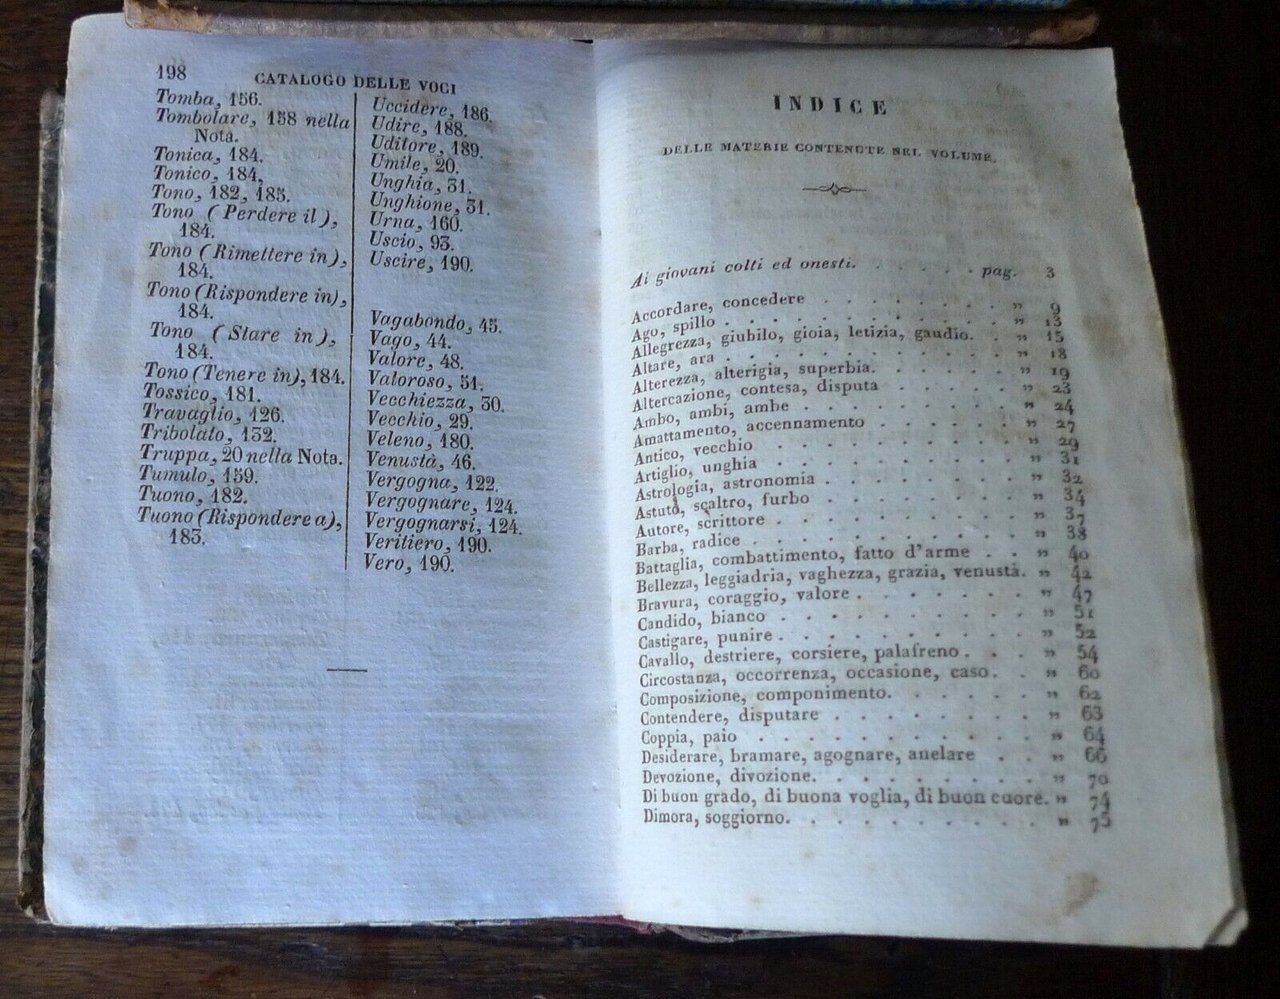 198
CATALOGO DELLE VOCI
Tomba, 156.
Tombolare, 158 nella
Nota.
Tonica, 184.
Tonico, 184,
Tono, 182, 185.
Tono (Perdere il),
184.
Tono (Rimettere in),
184.
Tono (Rispondere in),
184.
Tono (Stare in),
184.
Tono (Tenere in), 184.
Tossico, 181.
Travaglio, 126.
Tribolato, 132.
Truppa, 20 nella Nota.
Tumulo, 159.
Tuono, 182.
Tuono (Rispondere a),
183.
Uccidere, 186.
Udire, 188.
Uditore, 189.
Umile, 20.
Unghia, 31.
Unghione, 31.
Urna, 160.
Uscio, 93.
Uscire, 190.
Vagabondo, 45.
Vago, 44.
Valore, 48.
Valoroso, 51.
Vecchiezza, 30.
Vecchio, 29.
Veleno, 180.
Venustà, 46.
Vergogna, 122.
Vergognare, 124.
Vergognarsi, 124.
Veritiero, 190.
Vero, 190.
INDICE
DELLE MATERIE CONTENUTE NEL VOLUME.
Ai giovani colti ed onesti. . . . . . . pag. 3
Accordare, concedere . . . . . . . . . " 9
Ago, spillo . . . . . . . . . . . . " 13
Allegrezza, giubilo, gioia, letizia, gaudio. . " 15
Altare, ara . . . . . . . . . . . . " 18
Alterezza, alterigia, superbia. . . . . . " 19
Altercazione, contesa, disputa . . . . . " 23
Ambo, ambi, ambe . . . . . . . . . " 24
Amattamento, accennamento . . . . . . " 27
Antico, vecchio . . . . . . . . . . " 29
Artiglio, unghia . . . . . . . . . . " 31
Astrologia, astronomia . . . . . . . . " 32
Astuto, scaltro, furbo . . . . . . . . " 34
Autore, scrittore . . . . . . . . . . " 37
Barba, radice . . . . . . . . . . . " 38
Battaglia, combattimento, fatto d'arme . . " 40
Bellezza, leggiadria, vaghezza, grazia, venustà. " 42
Bravura, coraggio, valore . . . . . . . " 47
Candido, bianco . . . . . . . . . . " 51
Castigare, punire . . . . . . . . . . " 52
Cavallo, destriere, corsiere, palafreno . . . " 54
Circostanza, occorrenza, occasione, caso. . " 60
Composizione, componimento. . . . . . " 62
Contendere, disputare . . . . . . . . " 63
Coppia, paio . . . . . . . . . . . " 64
Desiderare, bramare, agognare, anelare . . " 66
Devozione, divozione. . . . . . . . . " 70
Di buon grado, di buona voglia, di buon cuore. " 74
Dimora, soggiorno. . . . . . . . . . " 75